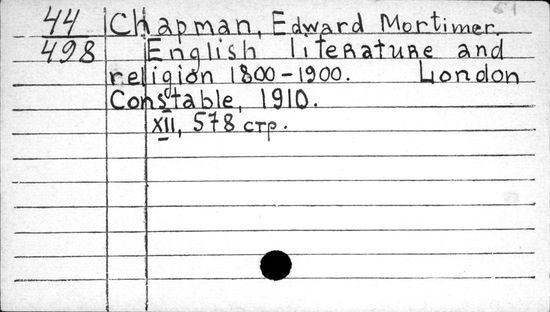 44 Chapman, Edward Mortimer.
498 English literature and
religion 1800-1900. London
Constable, 1910.
XII, 578 стр.